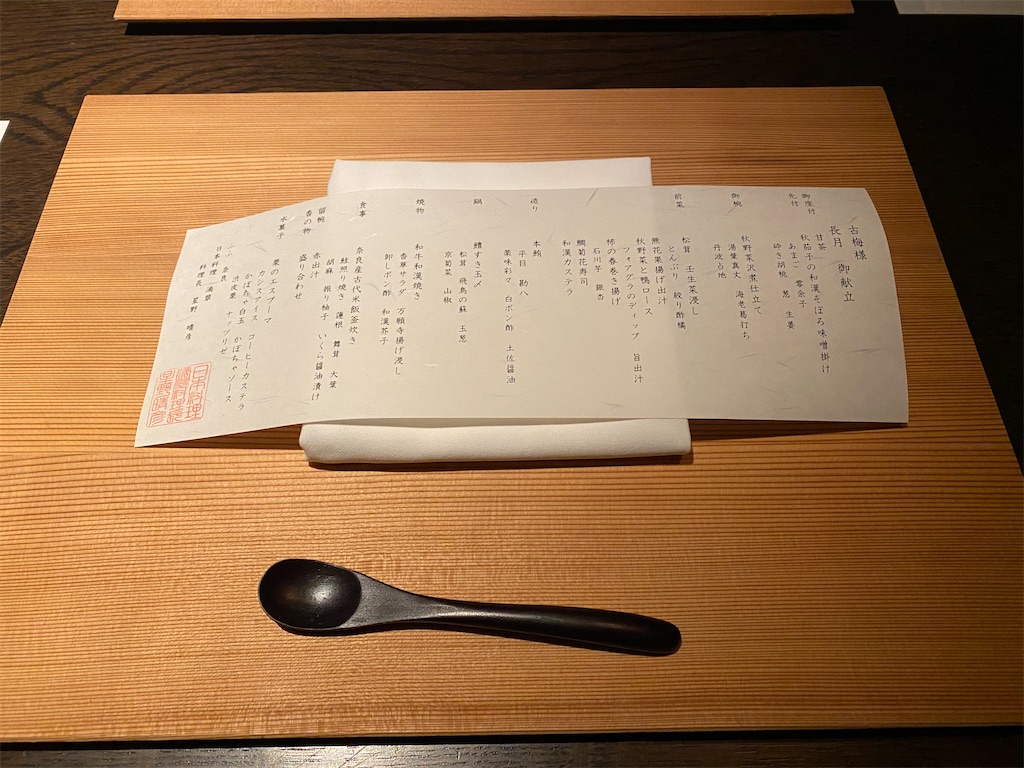 古梅様
長月 御献立
御座付
甘茶
先付
秋茄子の和漢そぼろ味噌掛け
あまご 零余子
砕き胡桃 葱 生姜
御椀
秋野菜沢煮仕立て
湯葉真丈 海老葛打ち
丹波占地
前菜
松茸 壬生菜浸し
とんぶり 絞り酢橘
無花果揚げ出汁
秋野菜と鴨ロース
フォアグラのディップ 旨出汁
柿の春巻き揚げ
石川芋 銀杏
鯛菊花寿司
和漢カステラ
造り
本鮪
平目 勘八
薬味彩々 白ポン酢 土佐醤油
鍋
鱧すき玉〆
松茸 飛鳥の蘇 玉葱
京菊菜 山椒
焼物
和牛和漢焼き
香草サラダ 万願寺揚げ浸し
卸しポン酢 和漢芥子
食事
奈良産古代米飯釜炊き
鮭照り焼き 蓮根 舞茸 大葉
胡麻 振り柚子 いくら醤油漬け
留椀
赤出汁
香の物
盛り合わせ
水菓子
栗のエスプーマ
カシスアイス コーヒーカステラ
かぼちゃ白玉 かぼちゃソース
渋皮栗 ナッツリゼ
日本料理
料理長 星野 晴彦
日本料理